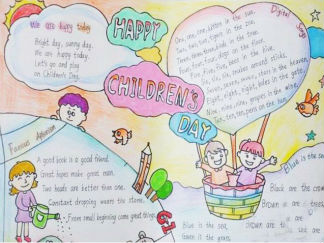 We are happy today
Bright day, sunny day.
We are happy today.
Let's go and play
on Children's Day.
HAPPY
CHILDREN'S
DAY
Digital Songs
One, one, one, kitten in the sun,
Two, two, two, tigers in the zoo,
Three, three, three, birds in the tree,
Four, four, four, dogs on the floor,
Five, five, five, bees in the
Six, six, six, around sticks,
Seven, seven, seven, stars in the heaven,
Eight, eight, eight, in the gate,
Nine, nine, nine, grapes in the wine,
Ten, ten, ten, pens on the
Famous Aphorism
A good book is a good friend.
Great hopes make great man.
Two heads are better than one.
Constant dropping wears the stone.
From small beginning come great things.
Blue is the sea
Black are the crows
Brown are trees,
are
are
Blue is the sea,
Green is the grass,